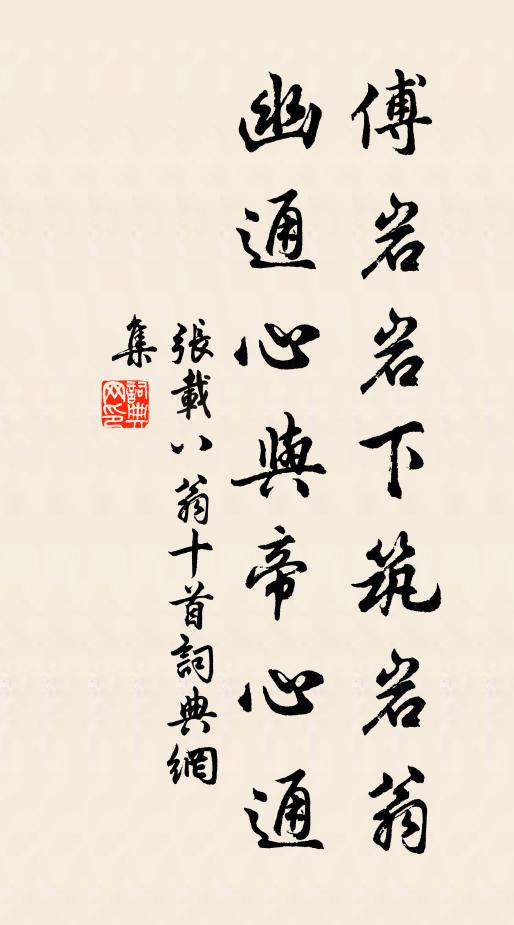 傅岩岩下筑岩翁
幽通心與帝心通
張載八翁十首詞典網
集
詞典網印